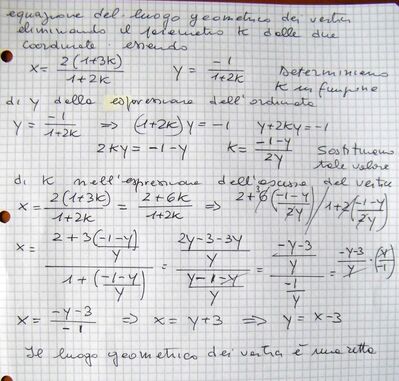 equazione del luogo geometrico dei vertici
eliminando il parametro K dalle due
coordinate essendo
x = 2(1+3k)/1+2k    y = -1/1+2k    Determiniamo
K in funzione
di y dalla espressione dell'ordinata
y = -1/1+2k ⇒ (1+2k)y = -1    y+2ky = -1
2ky = -1-y    k = -1-y/2y    Sostituiamo
tale valore
di K nell'espressione dell'ascissa del vertice
x = 2(1+3k)/1+2k = 2+6k/1+2k ⇒ 2+6³(-1-y/2y)/1+2(-1-y/2y)
x = 2+3(-1-y/y)/1+(-1-y/y) = 2y-3-3y/y/y-1-y/y = -y-3/y/-1/y = -y-3/y·(y/-1)
x = -y-3/-1 ⇒ x = y+3 ⇒ y = x-3
Il luogo geometrico dei vertici è una retta